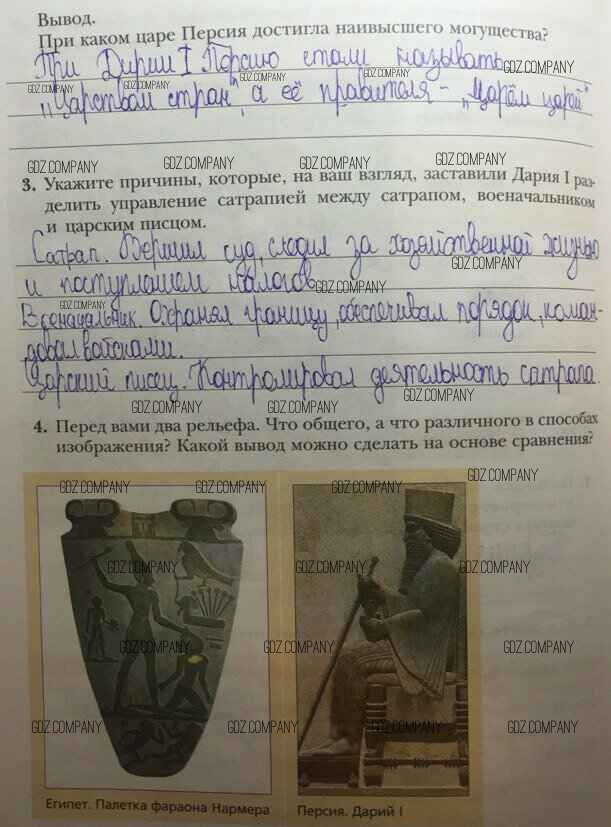 Вывод.
При каком царе Персия достигла наивысшего могущества?
При Дарии I Персию стали называть GDZ.COMPANY
GDZ.COMPANY GDZ.COMPANY
„Царством стран", а её правителя – „Царём царей"
GDZ.COMPANY GDZ.COMPANY GDZ.COMPANY GDZ.COMPANY
3. Укажите причины, которые, на ваш взгляд, заставили Дария I раз-
делить управление сатрапией между сатрапом, военачальником
и царским писцом.
Сатрап. Вершил суд, следил за хозяйственной жизнью
GDZ.COMPANY
и поступлением налогов GDZ.COMPANY
GDZ.COMPANY
Военачальник. Охранял границу, обеспечивал порядок, коман-
довал войсками.
Царский писец. Контролировал деятельность сатрапа.
GDZ.COMPANY GDZ.COMPANY GDZ.COMPANY GDZ.COMPANY
4. Перед вами два рельефа. Что общего, а что различного в способах
изображения? Какой вывод можно сделать на основе сравнения?
GDZ.COMPANY GDZ.COMPANY GDZ.COMPANY GDZ.COMPANY
GDZ.COMPANY GDZ.COMPANY GDZ.COMPANY GDZ.COMPANY
GDZ.COMPANY GDZ.COMPANY GDZ.COMPANY GDZ.COMPANY
GDZ.COMPANY GDZ.COMPANY GDZ.COMPANY GDZ.COMPANY
Египет. Палетка фараона Нармера
Персия. Дарий I